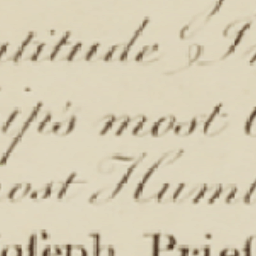 titude
ip's most
ost Hum
oſeph Prieſ